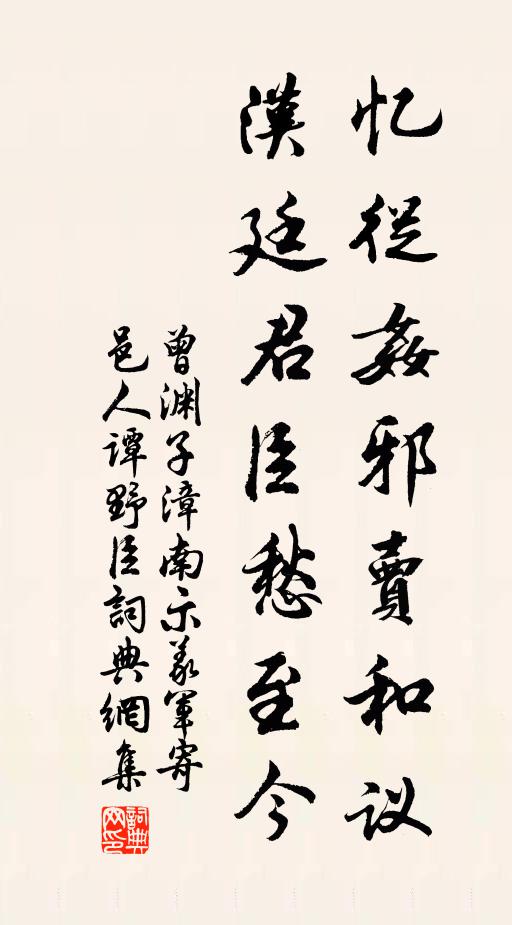 忆從姦邪賣和议
漢廷君臣愁至今
曾渊子漳南示义軍寄
邑人谭野臣詞典網集
詞典网印